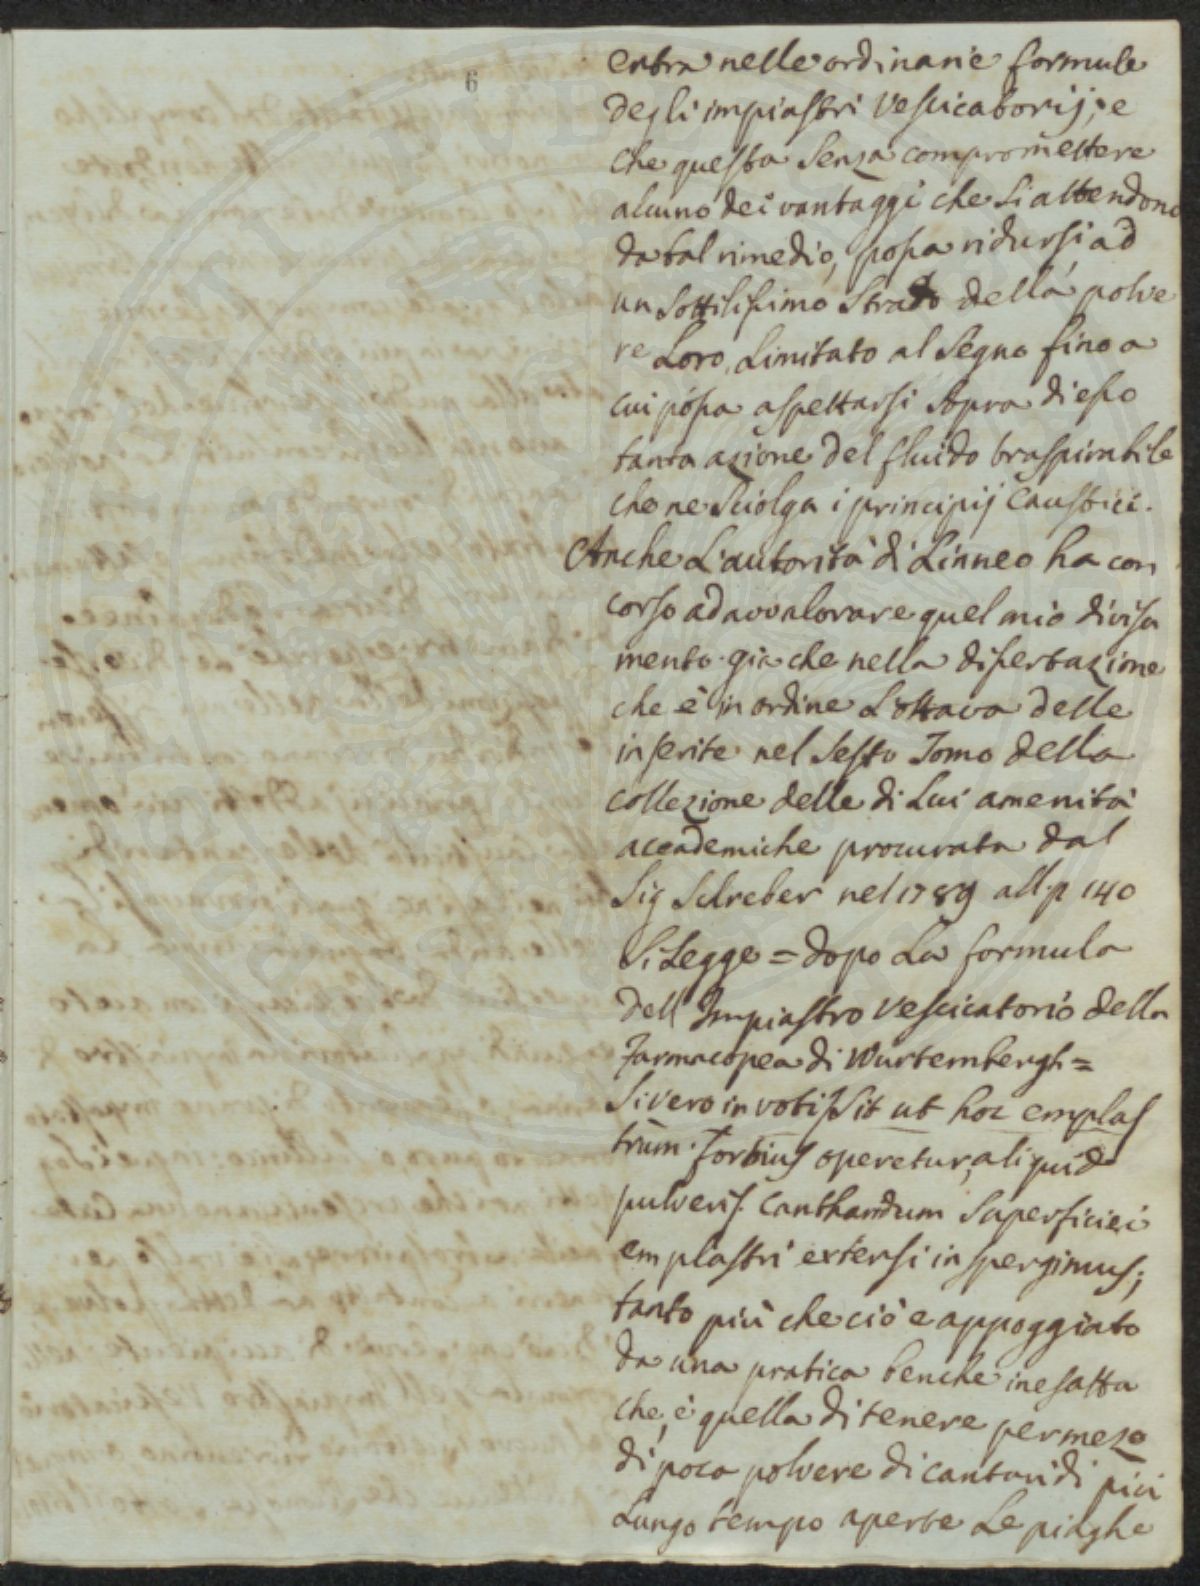 6
entra nelle ordinarie formule
degli impiastri Vescicatorij; e
che questa Senza comprom̃ettere
alcuno dei vantaggi che Si attendono
da tal rimedio, possa ridursi ad
un Sottilissimo Strato della polve
re Loro, Limitato al Segno fino a
cui possa aspettarsi Sopra di esso
tanta azione del fluido traspirabile
che ne Sciolga i principij Caustici.
Anche L'autorità di Linneo ha con
corso ad avvalorare quel mio divisa
mento. già che nella dissertazione
che è in ordine L'ottava delle
inserite nel Sesto Tomo della
collezione delle di Lui amenità
accademiche procurata dal
Sig Schreber nel 1789 all p 140
Si Legge = dopo La formula
dell Impiastro Vescicatorio della
Farmacopea di Wurtembergh =
Si vero in votis Sit ut hoc emplas
trum fortius operetur, aliquid
pulveris Cantharidum Superficiei
emplastri extensi inspergimus;
tanto più che ciò e appoggiato
da una pratica benche inesatta
che, è quella di tenere per mezo
di poca polvere di cantaridi più
Lungo tempo aperte Le piaghe